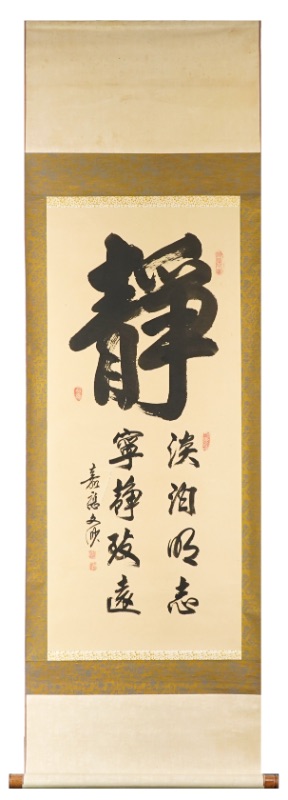 靜
淡泊明志
寧靜致遠